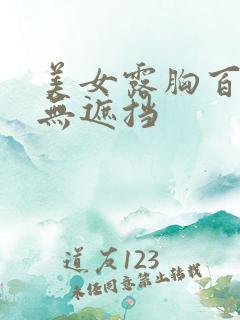 美女露胸百
無遮挡
道友123
未经同意禁止转载